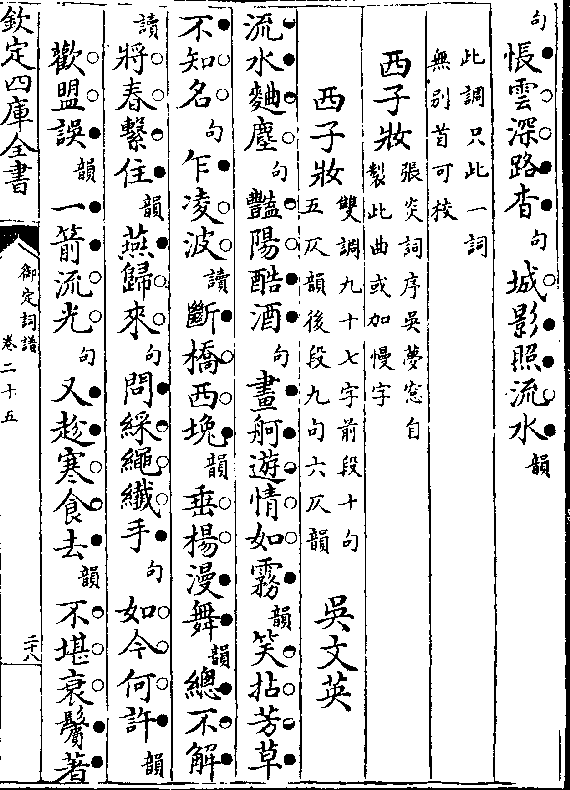 句悵雲深路杳句城影照流水韻
此調只此一詞
無别首可校
西子妝張炎詞序吳夢窓自
製此曲或加慢字
西子妝雙調九十七字前段十句
五仄韻後段九句六仄韻吳文英
流水麯塵句豔陽酷酒句畫舸遊情如霧韻笑拈芳草
不知名句乍凌波讀斷橋西堍韻垂楊漫舞韻總不解
讀將春繫住韻燕歸來句問綵繩纖手句如今何許韻
歡盟誤韻一箭流光句又趂寒食去韻不堪衰鬢著
欽定四庫全書
御定詞譜
卷二十五
二十八